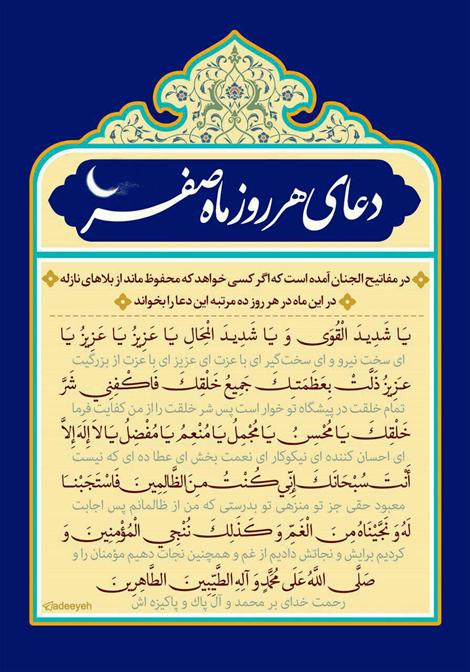 دعای هر روز ماه صفر
در مفاتیح الجنان آمده است که اگر کسی خواهد که محفوظ ماند از بلاهای نازله
در این ماه در هر روز ده مرتبه این دعا را بخواند
يَا شَدِيدَ الْقُوَى وَ يَا شَدِيدَ الْمِحَالِ يَا عَزِيزُ يَا عَزِيزُ يَا
ای سخت نیرو و ای سخت‌گیر ای با عزت ای عزیز ای با عزت از بزرگیت
عَزِيزُ ذَلَّتْ بِعَظَمَتِكَ جَمِيعُ خَلْقِكَ فَاكْفِنِي شَرَّ
تمام خلقت در پیشگاه تو خوار است پس شر خلقت را از من کفایت فرما
خَلْقِكَ يَا مُحْسِنُ يَا مُجْمِلُ يَا مُنْعِمُ يَا مُفْضِلُ يَا لا إِلَهَ إِلاَّ
ای احسان کننده ای نیکوکار ای نعمت بخش ای عطا ده ای که نیست
أَنْتَ سُبْحَانَكَ إِنِّي كُنْتُ مِنَ الظَّالِمِينَ فَاسْتَجَبْنَا
معبود حقی جز تو منزهی تو بدرستی که من از ظالمانم پس اجابت
لَهُ وَ نَجَّيْنَاهُ مِنَ الْغَمِّ وَ كَذَلِكَ نُنْجِي الْمُؤْمِنِينَ وَ
کردیم برایش و نجاتش دادیم از غم و همچنین نجات دهیم مؤمنان را و
صَلَّى اللَّهُ عَلَى مُحَمَّدٍ وَ آلِهِ الطَّيِّبِينَ الطَّاهِرِينَ
رحمت خدای بر محمد و آل پاك و پاکیزه اش
adeeyeh